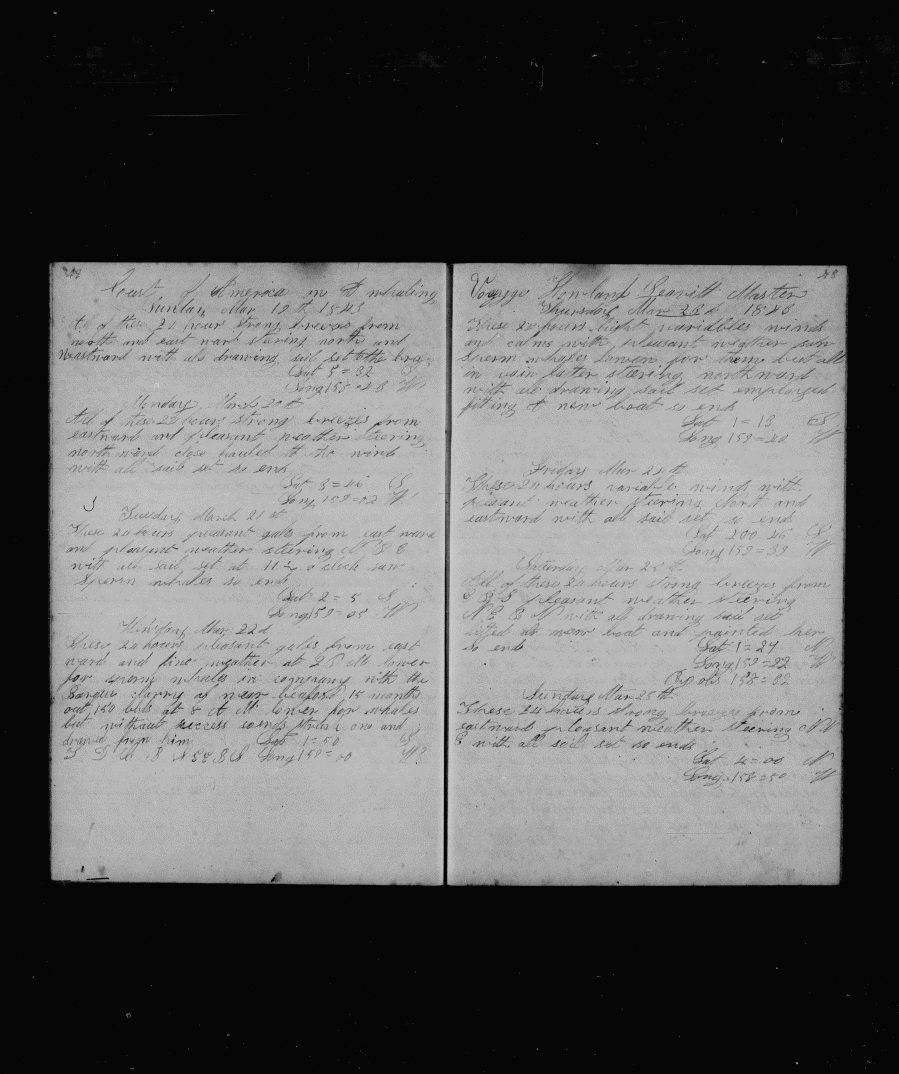 Coast of America on A whaling
Sunday Mar 19 th 1843
All of these 24 hours strong breezes from
north and east ward stering north and
eastward with all drawing sail set to the bree
Lat 5=32 S
Long 158=28 W
Monday Mar 20 th
All of these 24 hours strong breezes from
eastward and pleasant weather steering
north ward close hauled to the wind
with all sail set so end
Lat 3=46 S
Long 159=22 W
Tuesday March 21 st
These 24 hours pleasant gales from east ward
and pleasant weather steering N
with all sail set at 11 o clock saw
sperm whales so end
Lat 2=5 S
Long 159=08 W
Mar 22 d
These 24 hours pleasant gales from east
ward and fine weather at 2 P M lower
for sperm whales in company with the
15 months
out 150 bbls at 8 A M lower for whales
but without success so ends struck one and
drawed from him Lat 1=50 S
Long 159= W
Voyge Howland Leavitt Master
Thursday Mar 23 d 1843
These 24 hours light variables winds
and calms with pleasant weather saw
sperm whales lower for them but all
in vain later steering northward
with all drawing sail set employed
fitting A new boat so end
Lat 1=19 S
Long 159=20 W
Friday Mar 24 th
These 24 hours variable winds with
pleasant weather steering North and
eastward with all sail set so end
Lat 00 46 S
Long 159=33 W
Saturday Mar 25 th
All of these 24 hours strong breezes from
pleasant weather steering
with all drawing sail set
new boat and painted her
so ends Lat 1=24 N
Long 159=22 W
158=32
Sunday Mar 25 th
These 24 hours strong breezes from
eastward pleasant weather steering
with all sail set so ends
Lat 4=00 N
Long 158=50 W